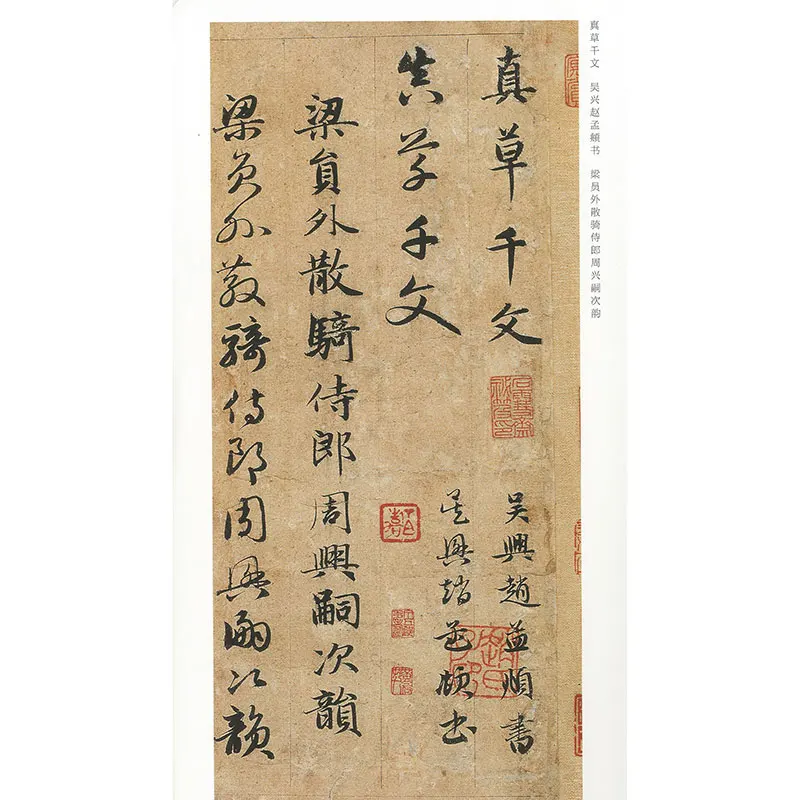 真草千文 吴兴赵孟頫书 梁员外散骑侍郎周兴嗣次韵
真草千文
吴興趙孟頫書
真草千文
吴興趙孟頫书
梁員外散騎侍郎周興嗣次韻
梁員外散騎侍郎周興嗣次韻